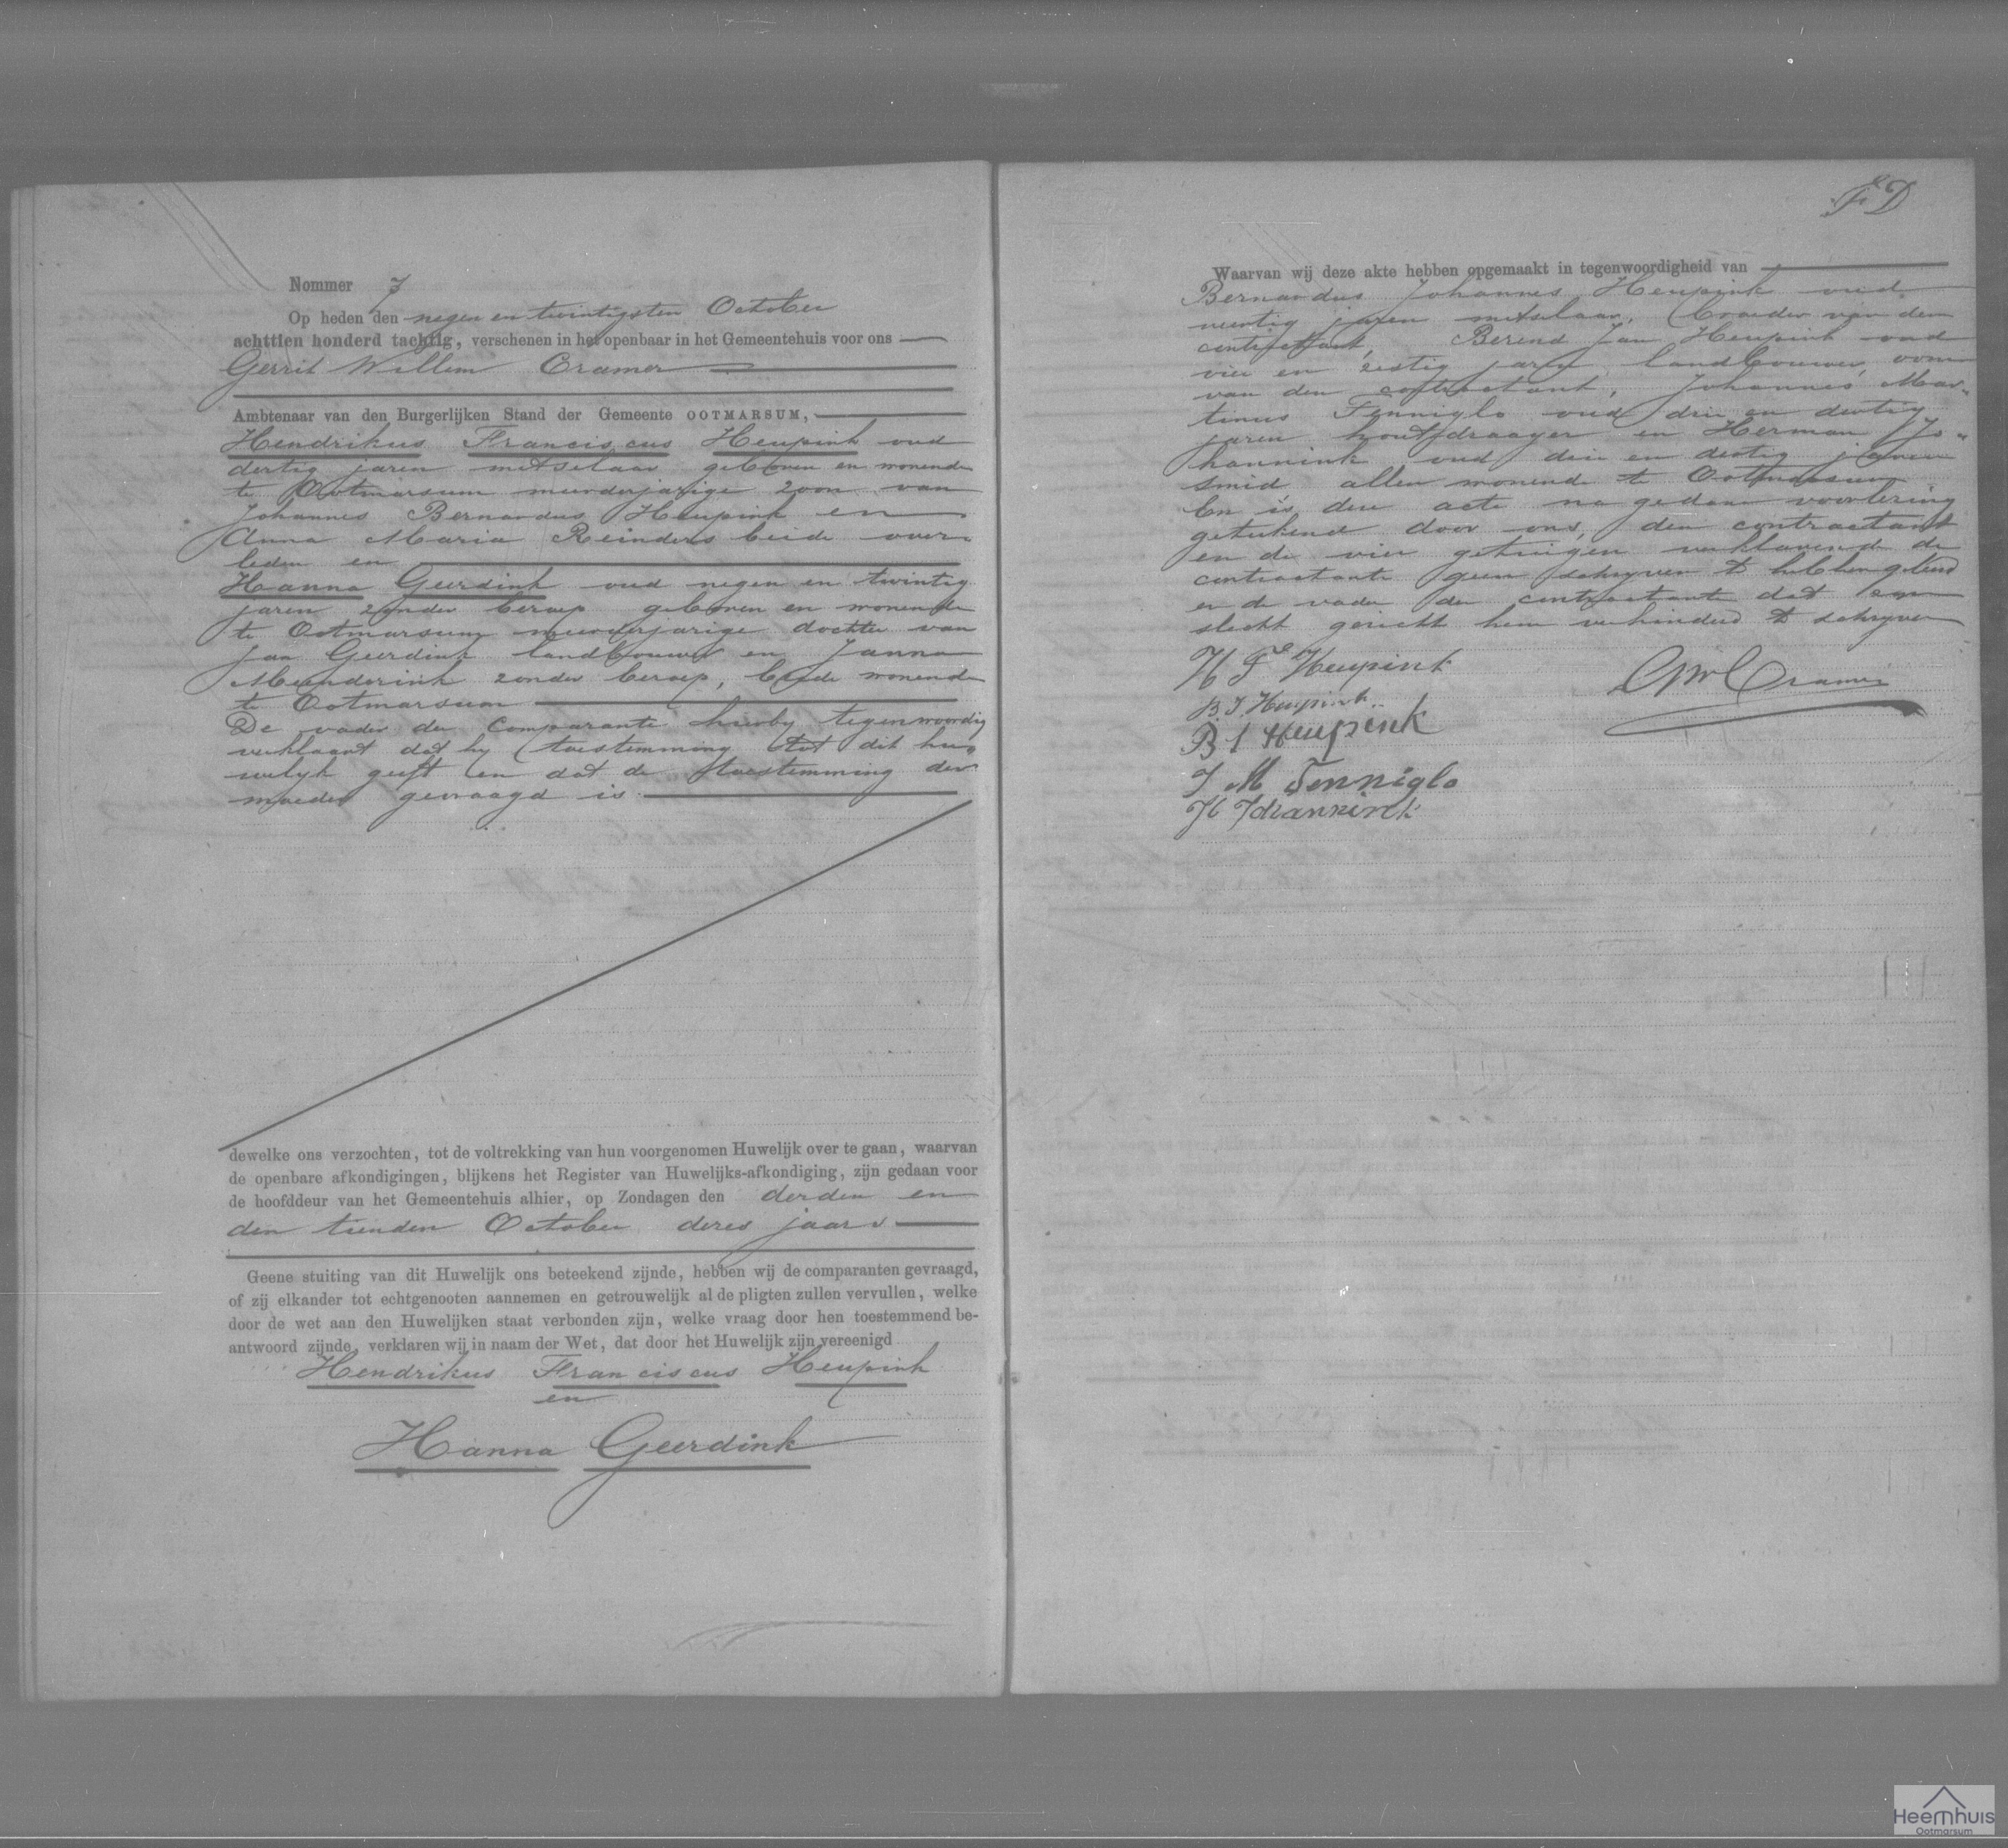 Nommer 7
Op heden den negen en twintigsten October
achttien honderd tachtig, verschenen in het openbaar in het Gemeentehuis voor ons
Gerrit Willem Cramer
Ambtenaar van den Burgerlijken Stand der Gemeente OOTMARSUM,
Hendrikus Franciscus Heupink oud
dertig jaren metselaar geboren en wonende
te Ootmarsum meerderjarige zoon van
Johannes Bernardus Heupink en
Anna Maria Reinders beide over-
leden en
Hanna Geerdink oud negen en twintig
jaren zonder beroep geboren en wonende
te Ootmarsum meerderjarige dochter van
Jan Geerdink landbouwer en Janna
Meenderink zonder beroep, beide wonende
te Ootmarsum
De vader der Comparante hierby tegenwoordig
verklaart dat hy toestemming tot dit hu-
welyk geeft en dat de toestemming der
moeder gevraagd is.
dewelke ons verzochten, tot de voltrekking van hun voorgenomen Huwelijk over te gaan, waarvan
de openbare afkondigingen, blijkens het Register van Huwelijks-afkondiging, zijn gedaan voor
de hoofddeur van het Gemeentehuis alhier, op Zondagen den derden en
den tienden October dezes jaars
Geene stuiting van dit Huwelijk ons beteekend zijnde, hebben wij de comparanten gevraagd,
of zij elkander tot echtgenooten aannemen en getrouwelijk al de pligten zullen vervullen, welke
door de wet aan den Huwelijken staat verbonden zijn, welke vraag door hen toestemmend be-
antwoord zijnde, verklaren wij in naam der Wet, dat door het Huwelijk zijn vereenigd
Hendrikus Franciscus Heupink
en
Hanna Geerdink
Waarvan wij deze akte hebben opgemaakt in tegenwoordigheid van
Bernardus Johannes Heupink oud
veertig jaren metselaar, broeder van den
contractant, Berend Jan Heupink oud
vier en zestig jaren landbouwer, oom
van den contractant, Johannes Mar-
tinus Tenniglo oud drie en dertig
jaren houtzaager en Herman Jo-
hannink oud drie en dertig jaren
smid allen wonende te Ootmarsum
En is deze acte na gedane voorlezing
getekend door ons, den contractant
en de vier getuigen verklarende de
contractante geen schryven te hebben geleerd
en de vader der contractante dat een
slecht gezicht hem verhinderd te schryven
H F Heupink
GWCramer
B. J. Heupink
B J Heupink
J M Tenniglo
H Johannink
Heemhuis
Ootmarsum